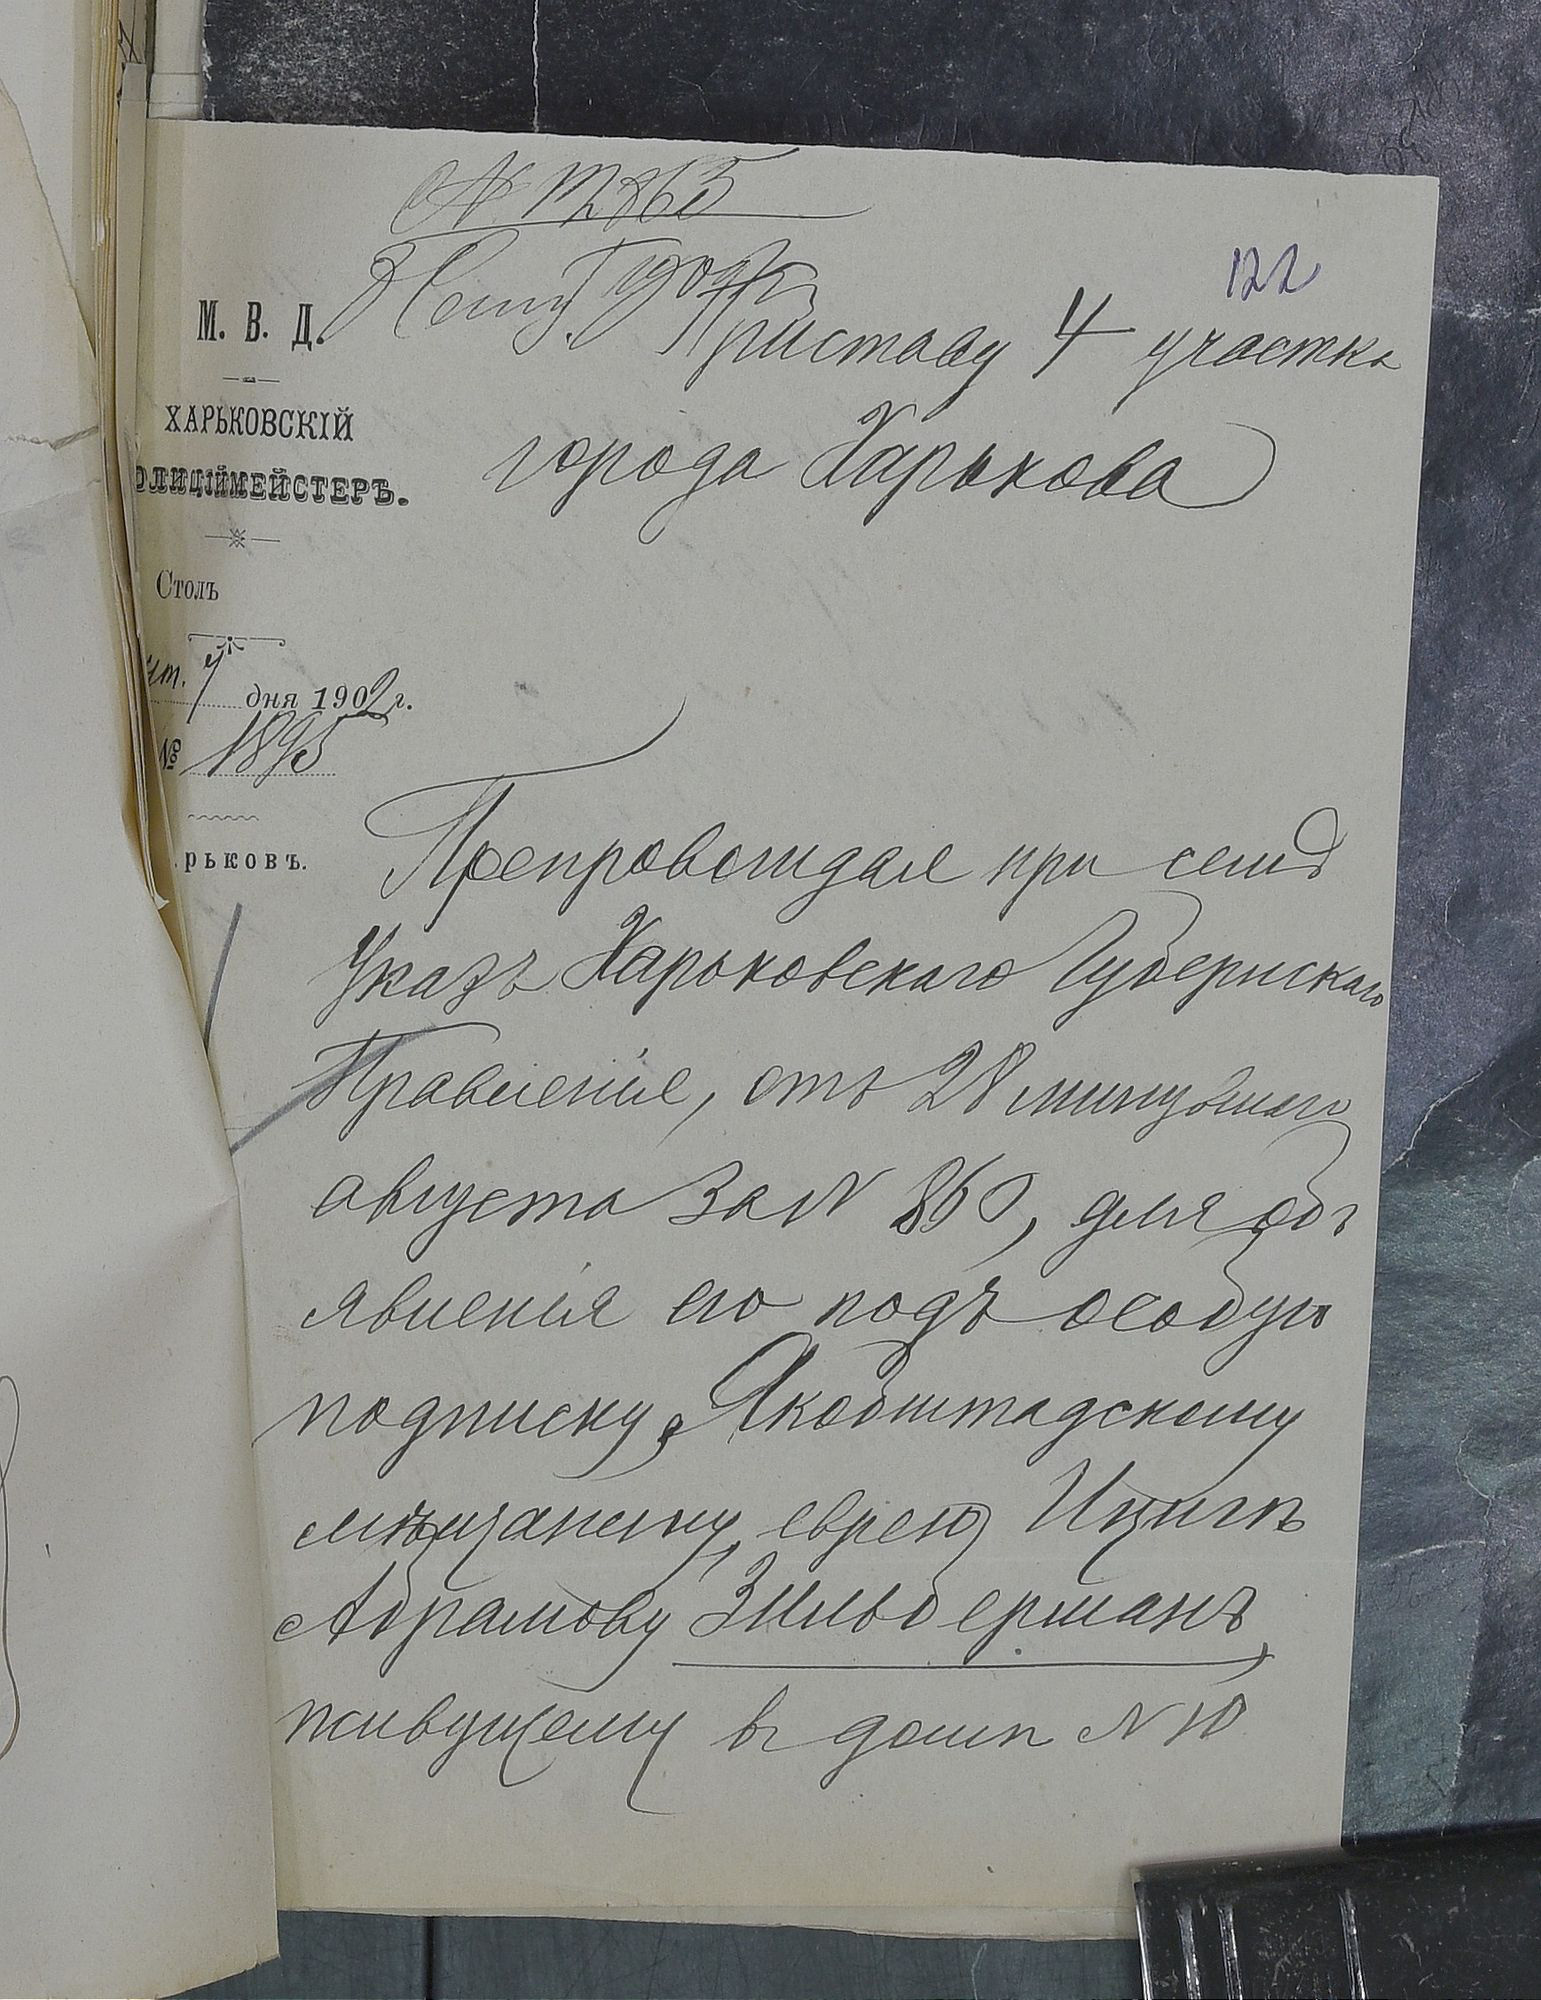 122
М. В. Д.
ХАРЬКОВСКІЙ
ОЛИЦІЙМЕЙСТЕРЪ.
Столъ
дня 1902 г.
№ 1895
рьковъ.
Приставу 4 участка
города Харькова
Препровождая при семъ
Указъ Харьковскаго Губернскаго
Правленія, отъ 28 минувшаго
августа за N 860, для объ
явленія его подъ особую
подписку, Якобштадскому
мѣщанину, еврею Ицигѣ
Абрамову Зильберманъ,
живущему въ домѣ N 10